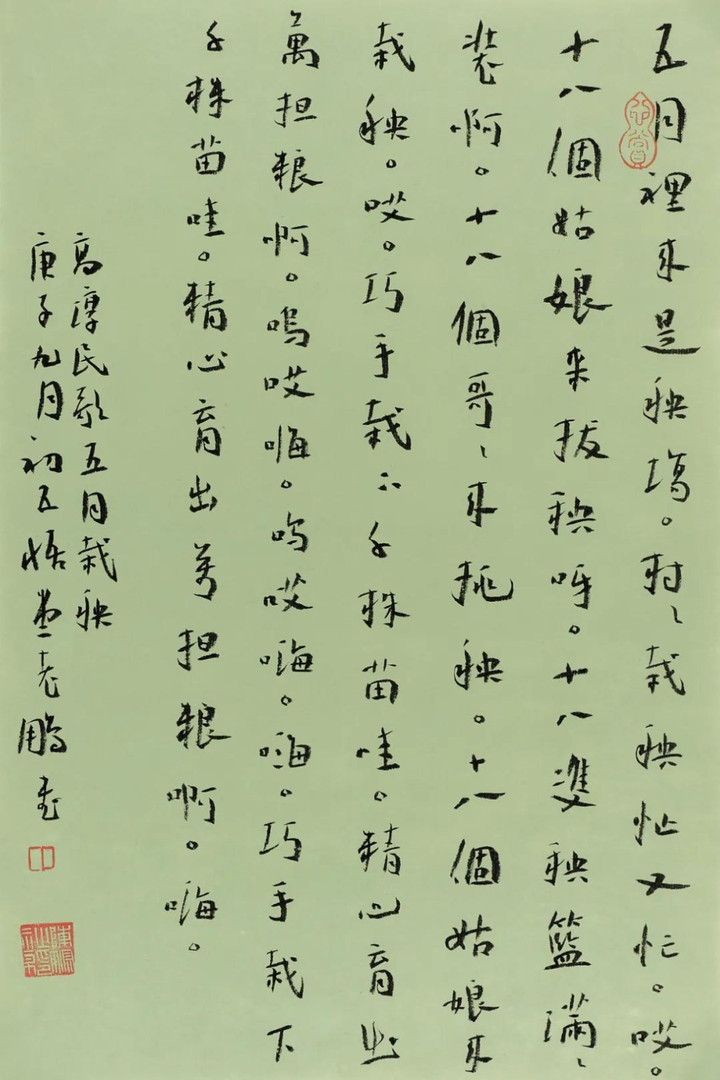 五月裡来是秧塲。村〻栽秧忙又忙。哎。
十八個姑娘来拔秧呀。十八雙秧籃滿〻
裝啊。十八個哥〻来挑秧。十八個姑娘来
栽秧。哎。巧手栽下千株苗哇。精心育出
萬担粮啊。嗚哎嗨。嗚哎嗨。嗨。巧手栽下
千株苗哇。精心育出萬担粮啊。嗨。
高淳民歌五月栽秧
庚子九月初五悟堂老鵬書